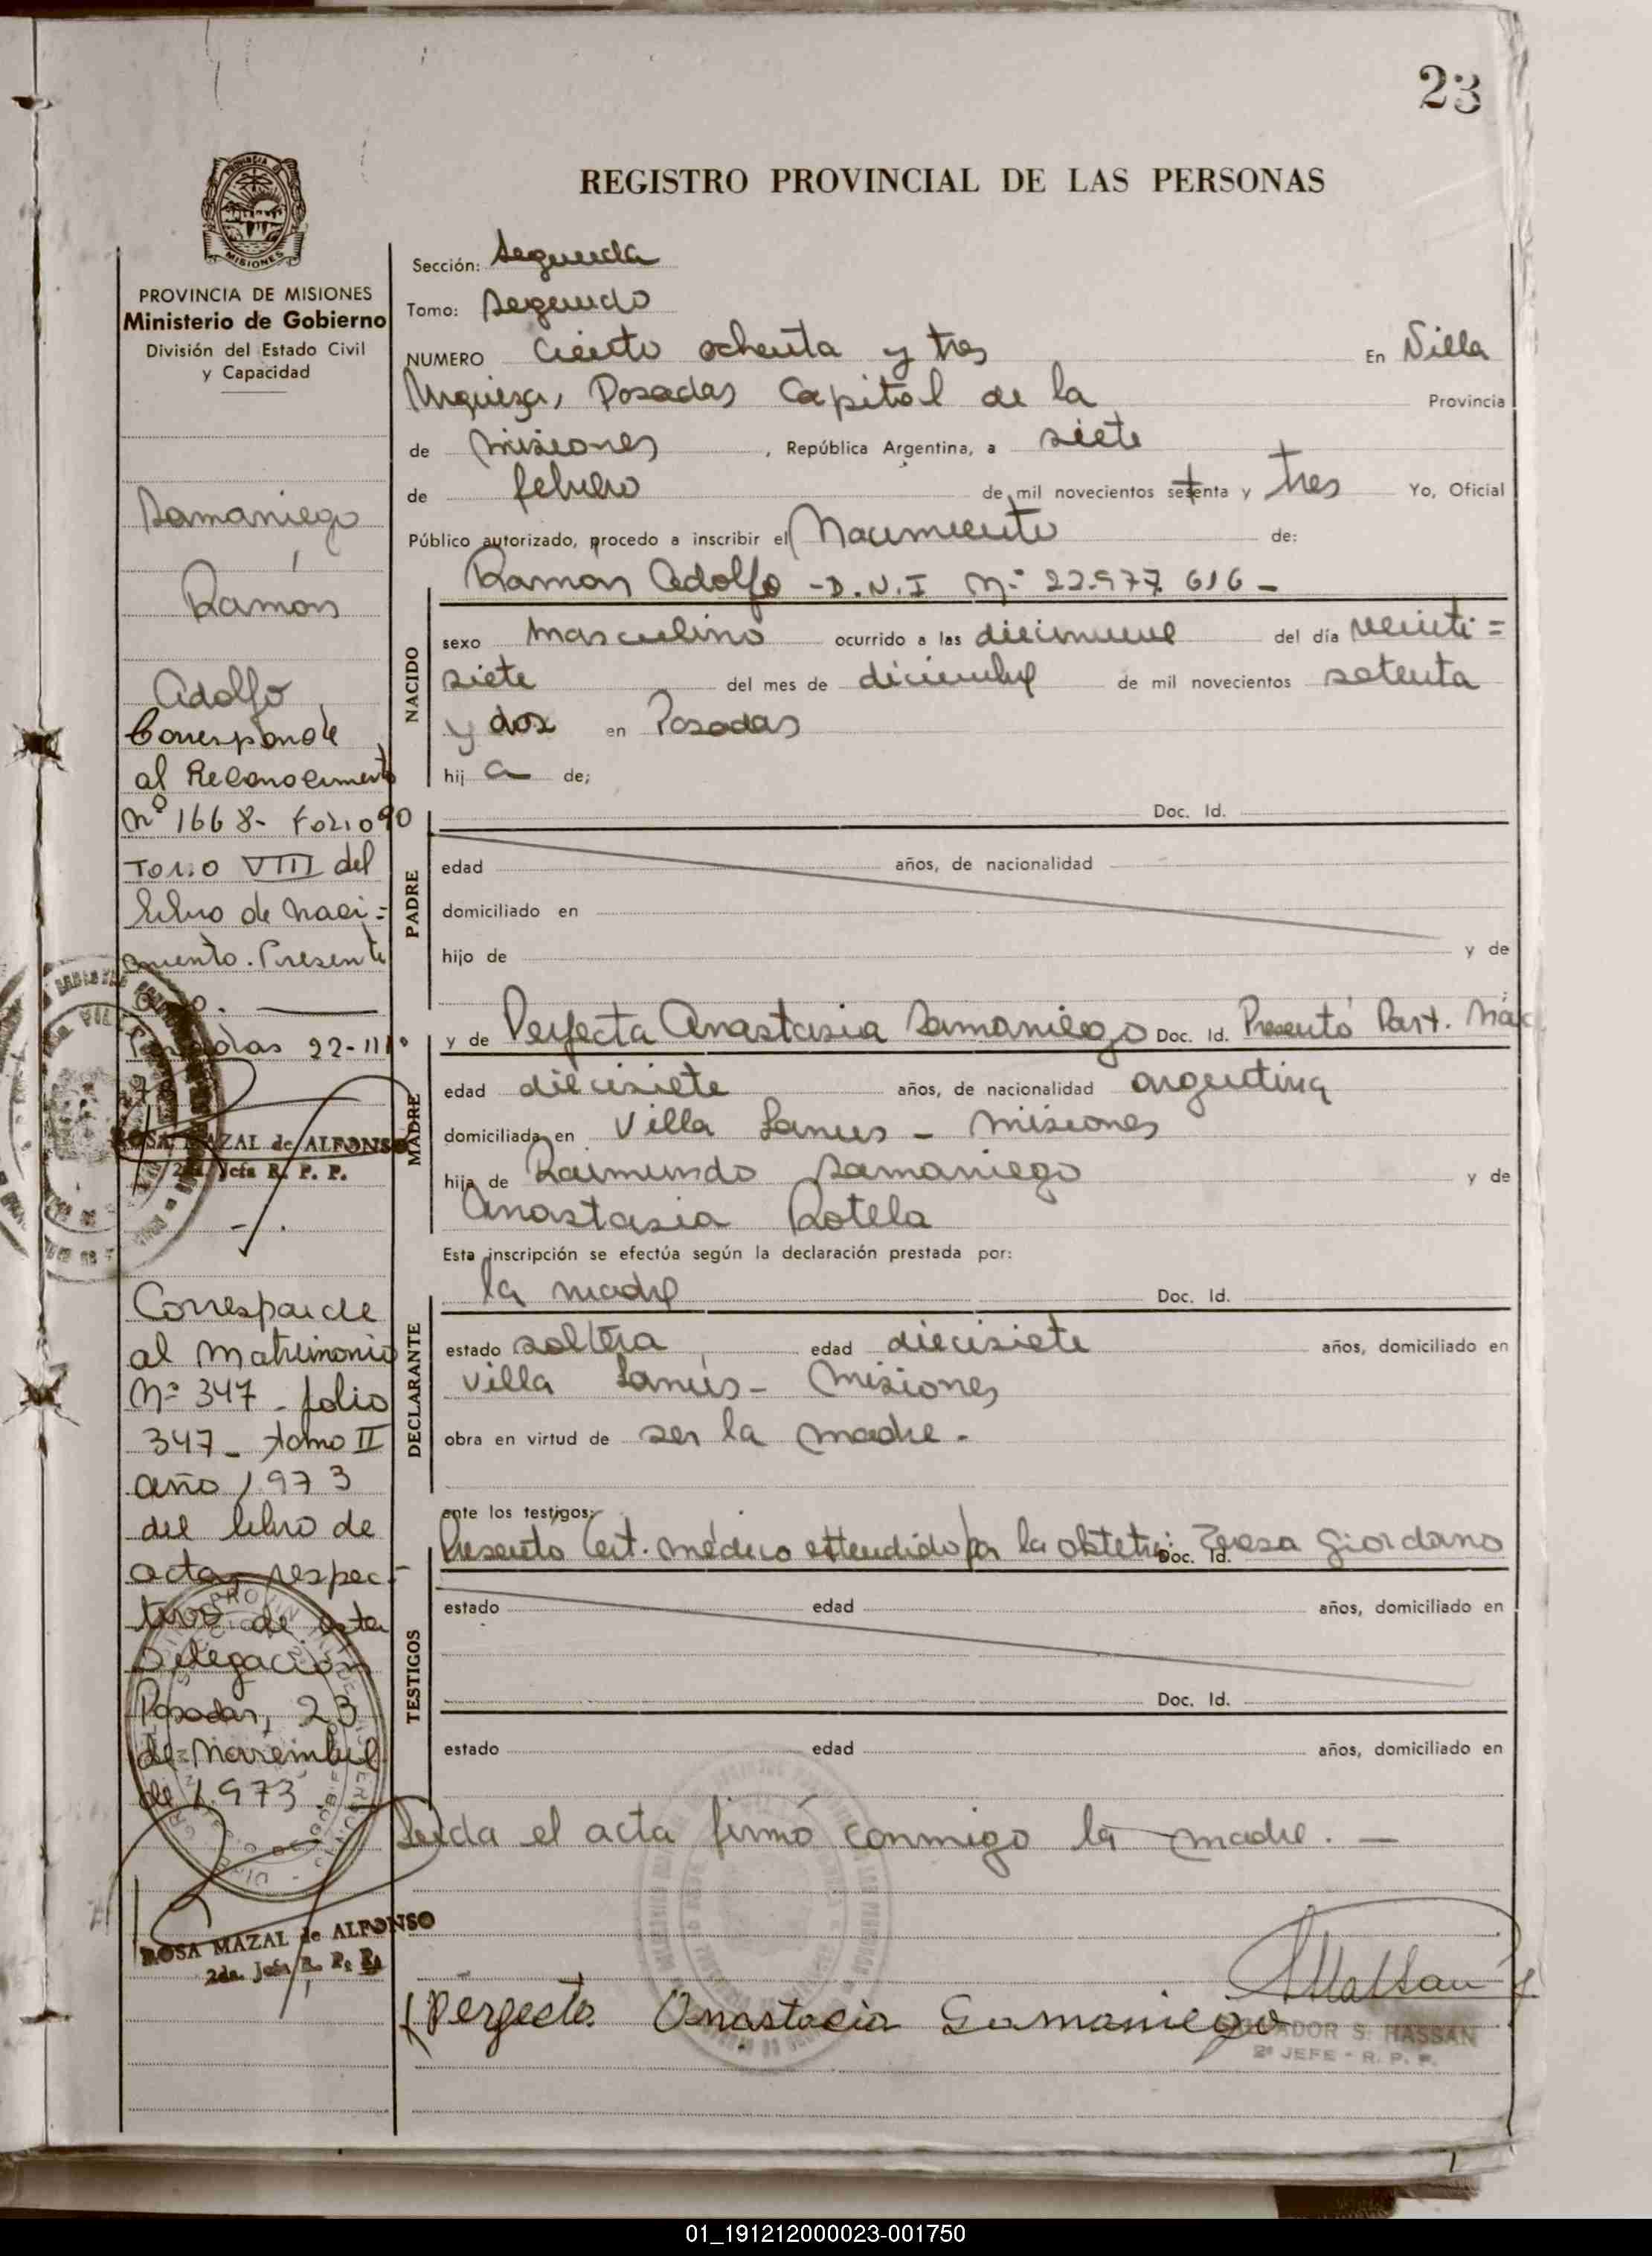 23
REGISTRO PROVINCIAL DE LAS PERSONAS
PROVINCIA DE MISIONES
Ministerio de Gobierno
División del Estado Civil
y Capacidad
Samaniego
Ramón
Adolfo
Corresponde
al Reconocimiento
Nº 1668- Folio 90
Tomo VIII del
libro de Naci=
miento. Presente
año.
Posadas 22-III
ROSA MAZAL de ALFONSO
2da. Jefa R. P. P.
Corresponde
al Matrimonio
Nº 347 - folio
347 - tomo II
año 1973
del libro de
actas respec-
tivo de esta
Delegación
Posadas, 23
de Noviembre
de 1.973
ROSA MAZAL de ALFONSO
2da. Jefa R. P. P.
Sección: Segunda
Tomo: Segundo
NUMERO Ciento ochenta y tres En Villa
Urquiza, Posadas Capital de la Provincia
de Misiones, República Argentina, a siete
de febrero de mil novecientos setenta y tres Yo, Oficial
Público autorizado, procedo a inscribir el Nacimiento de:
Ramón Adolfo - D.N.I Nº 22.977.616 -
NACIDO
sexo Masculino ocurrido a las diecinueve del día veinti=
siete del mes de diciembre de mil novecientos setenta
y dos en Posadas
hij a de;
Doc. Id.
PADRE
edad años, de nacionalidad
domiciliado en
hijo de y de
MADRE
y de Perfecta Anastasia Samaniego Doc. Id. Presentó Part. Nac
edad diecisiete años, de nacionalidad argentina
domiciliada en Villa Lanus - Misiones
hija de Raimundo Samaniego y de
Anastasia Rotela
Esta inscripción se efectúa según la declaración prestada por:
la madre Doc. Id.
DECLARANTE
estado soltera edad diecisiete años, domiciliado en
Villa Lanús - Misiones
obra en virtud de ser la madre.-
ante los testigos:
Presentó Cert. médico extendido por la obstetri: Teresa Giordano Doc. Id.
TESTIGOS
estado edad años, domiciliado en
Doc. Id.
estado edad años, domiciliado en
Leída el acta firmó conmigo la madre. -
Perfecta Anastacia Samaniego
SALVADOR S. HASSAN
2º JEFE - R. P. P.
01_191212000023-001750